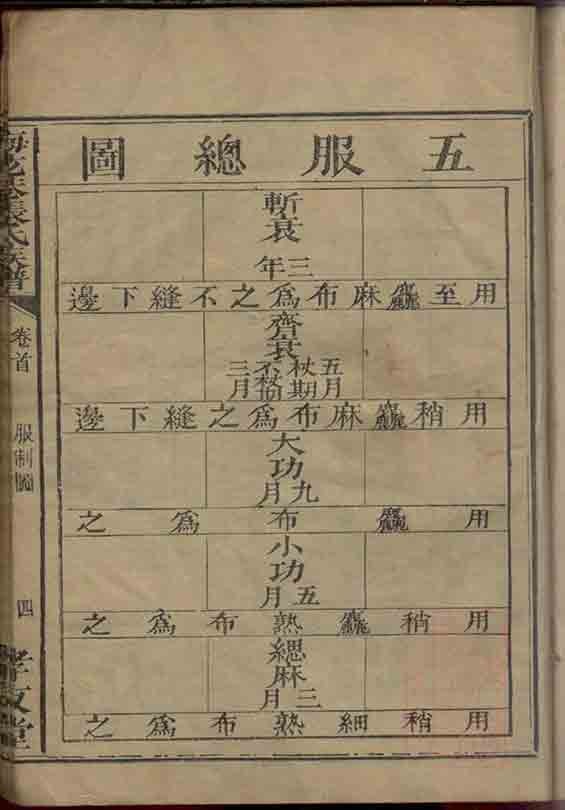 五服總圖
斬衰
三年
用至麤麻布為之不縫下邊
齊衰
五月
杖期
不杖期
三月
用稍麤麻布為之縫下邊
大功
九月
用麤布為之
小功
五月
用稍麤熟布為之
緦麻
三月
用稍細熟布為之
張氏族譜
卷首
服制圖
四
孝友堂